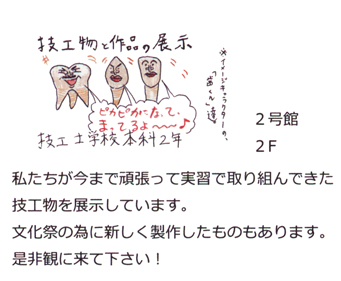 技工物と作品の展示
※イメージキャラクターの、
「歯くん」達
ピカピカになって、
まってるよ〜〜♪
技工士学校本科2年
2号館
2F
私たちが今まで頑張って実習で取り組んできた
技工物を展示しています。
文化祭の為に新しく製作したものもあります。
是非観に来て下さい！